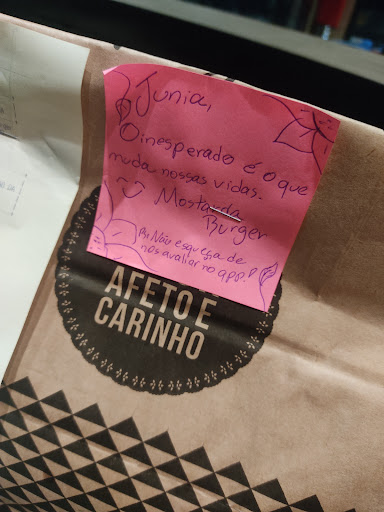 Junia,
O inesperado é o que
muda nossas vidas.
Mostarda
Burger
Ps: Não esqueça de
nos avaliar no app!
AFETO E
CARINHO